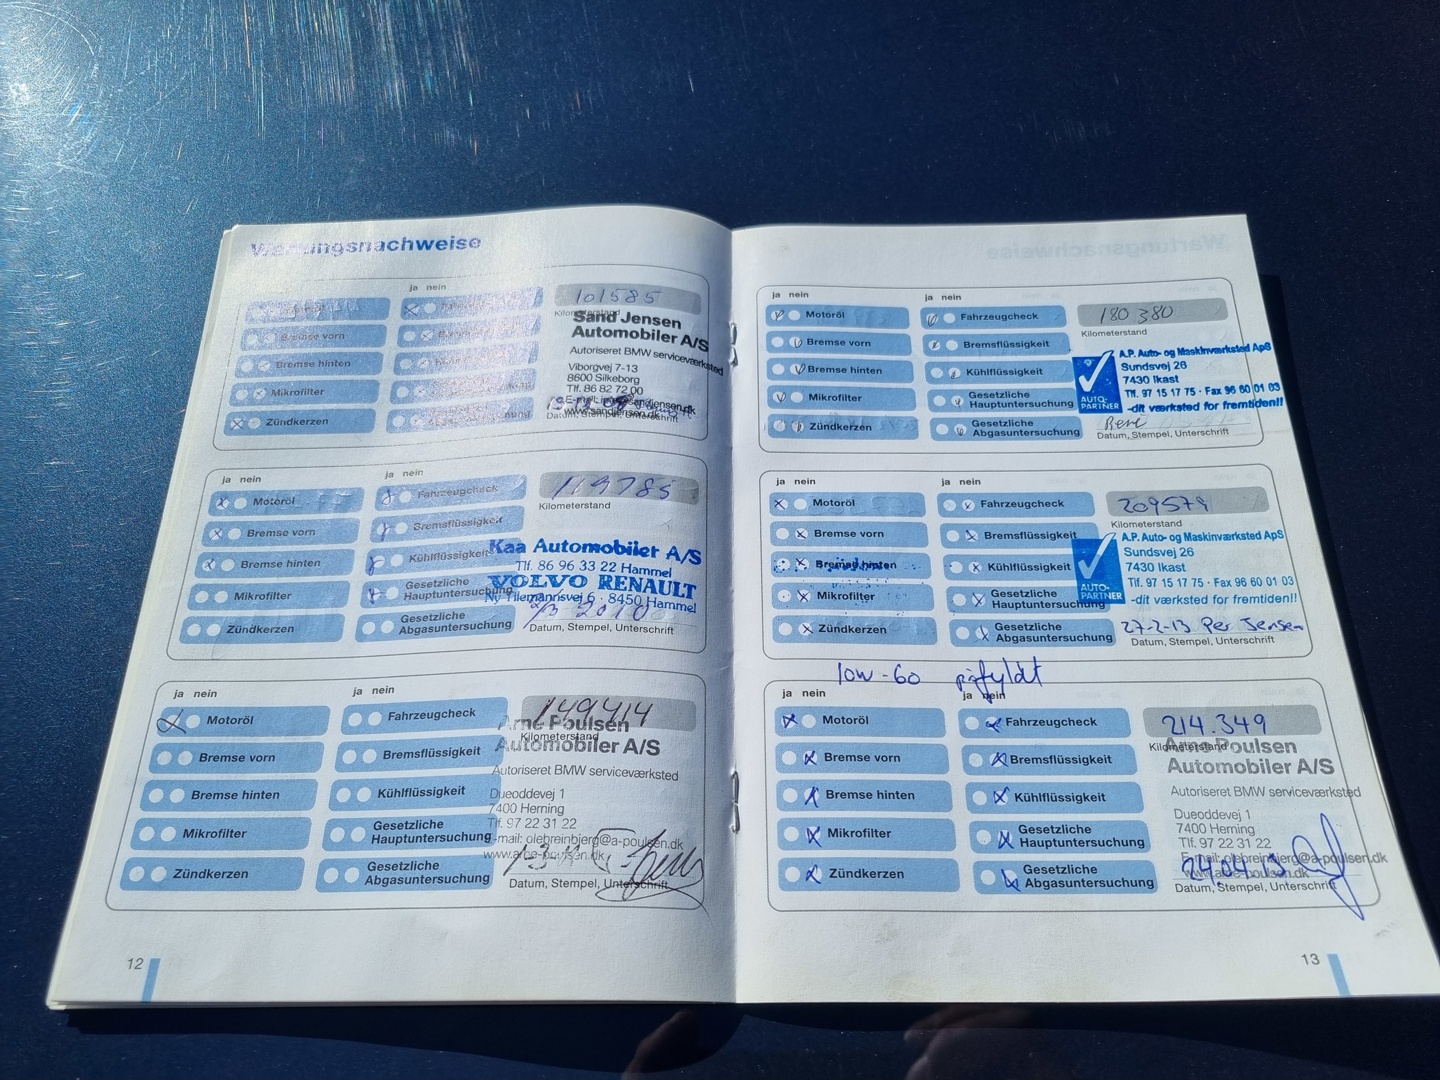 Wartungsnachweise
ja nein
101585
Kilometerstand
Sand Jensen
Automobiler A/S
Autoriseret BMW serviceværksted
Viborgvej 7-13
8600 Silkeborg
Tlf. 86 82 72 00
www.sandjensen.dk
Datum, Stempel, Unterschrift
Bremse vorn
Bremse hinten
Mikrofilter
Zündkerzen
ja nein ja nein
Motoröl Fahrzeugcheck
Bremse vorn Bremsflüssigkeit
Bremse hinten Kühlflüssigkeit
Mikrofilter Gesetzliche Hauptuntersuchung
Zündkerzen Gesetzliche Abgasuntersuchung
119785
Kilometerstand
Kaa Automobiler A/S
Tlf. 86 96 33 22 Hammel
VOLVO RENAULT
Ny Tilemannsvej 6 · 8450 Hammel
Datum, Stempel, Unterschrift
ja nein ja nein
Motoröl Fahrzeugcheck
Bremse vorn Bremsflüssigkeit
Bremse hinten Kühlflüssigkeit
Mikrofilter Gesetzliche Hauptuntersuchung
Zündkerzen Gesetzliche Abgasuntersuchung
149414
Kilometerstand
Arne Poulsen
Automobiler A/S
Autoriseret BMW serviceværksted
Dueoddevej 1
7400 Herning
Tlf. 97 22 31 22
E-mail: olebreinbjerg@a-poulsen.dk
www.arne-poulsen.dk
Datum, Stempel, Unterschrift
12
ja nein ja nein
Motoröl Fahrzeugcheck
Bremse vorn Bremsflüssigkeit
Bremse hinten Kühlflüssigkeit
Mikrofilter Gesetzliche Hauptuntersuchung
Zündkerzen Gesetzliche Abgasuntersuchung
180380
Kilometerstand
A.P. Auto- og Maskinværksted ApS
Sundsvej 26
7430 Ikast
Tlf. 97 15 17 75 · Fax 96 60 01 03
AUTO-PARTNER
-dit værksted for fremtiden!!
Datum, Stempel, Unterschrift
ja nein ja nein
Motoröl Fahrzeugcheck
Bremse vorn Bremsflüssigkeit
Bremse hinten Kühlflüssigkeit
Mikrofilter Gesetzliche Hauptuntersuchung
Zündkerzen Gesetzliche Abgasuntersuchung
209579
Kilometerstand
A.P. Auto- og Maskinværksted ApS
Sundsvej 26
7430 Ikast
Tlf. 97 15 17 75 · Fax 96 60 01 03
AUTO-PARTNER
-dit værksted for fremtiden!!
27-2-13 Per Jensen
Datum, Stempel, Unterschrift
10w-60 påfyldt
ja nein ja nein
Motoröl Fahrzeugcheck
Bremse vorn Bremsflüssigkeit
Bremse hinten Kühlflüssigkeit
Mikrofilter Gesetzliche Hauptuntersuchung
Zündkerzen Gesetzliche Abgasuntersuchung
214.349
Kilometerstand
Arne Poulsen
Automobiler A/S
Autoriseret BMW serviceværksted
Dueoddevej 1
7400 Herning
Tlf. 97 22 31 22
E-mail: olebreinbjerg@a-poulsen.dk
www.arne-poulsen.dk
Datum, Stempel, Unterschrift
13